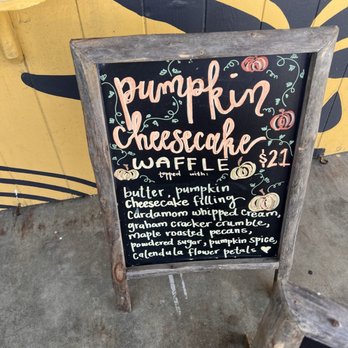 pumpkin
cheesecake
WAFFLE $21
topped with:
butter, pumpkin
cheesecake filling
cardamom whipped cream,
graham cracker crumble,
maple roasted pecans,
powdered sugar, pumpkin spice,
calendula flower petals